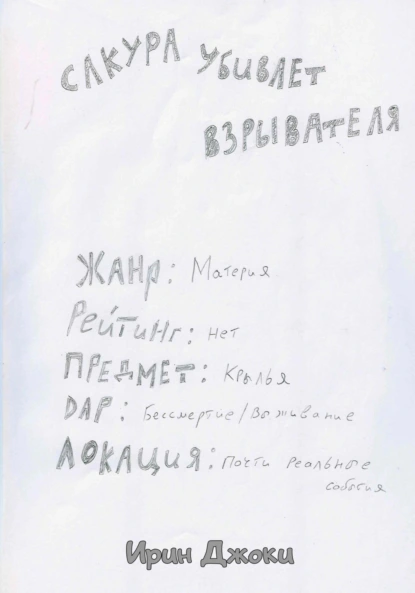 САКУРА УБИВАЕТ
ВЗРЫВАТЕЛЯ
ЖАНр: Материя
Рейтинг: нет
ПРЕДМЕТ: Крылья
DAP: Бессмертие/Выживание
ЛОКАЦИЯ: Почти реальные
события
Ирин Джоки